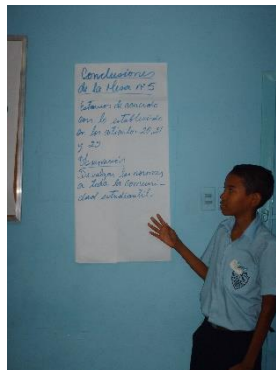 Conclusiones
de la Mesa nº 5
Estamos de acuerdo
con lo establecido
en los artículos 20, 21
y 23
Observación
Divulgar las normas
a toda la comuni-
dad estudiantil.